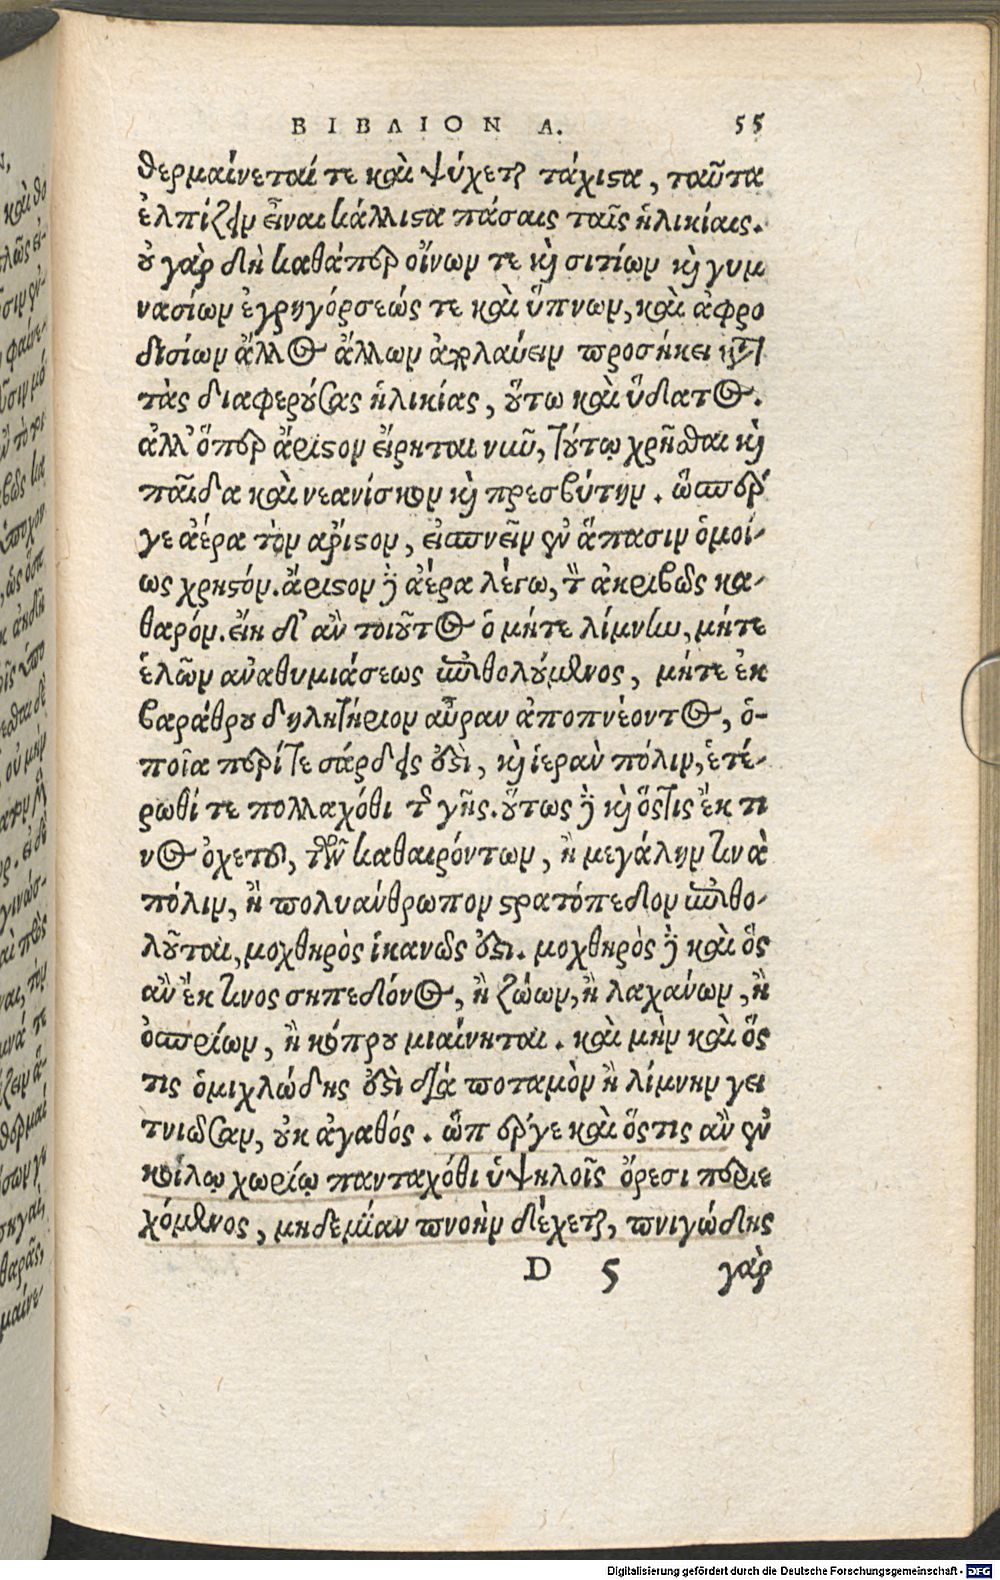 ΒΙΒΛΙΟΝ Α. 55
θερμαίνεταί τε καὶ ψύχεται τάχιστα, ταῦτα
ἐλπίζειν εἶναι κάλλιστα πάσαις ταῖς ἡλικίαις.
οὐ γὰρ δὴ καθάπερ οἴνων τε καὶ σιτίων καὶ γυμ
νασίων ἐγρηγόρσεώς τε καὶ ὕπνων, καὶ ἀφρο
δισίων ἄλλος ἄλλων ἀπολαύειν προσήκει κατὰ
τὰς διαφερούσας ἡλικίας, οὕτω καὶ ὕδατος.
ἀλλ' ὅπερ ἄριστον εἴρηται νῦν, τούτῳ χρῆσθαι καὶ
παῖδα καὶ νεανίσκον καὶ πρεσβύτην. ὥσπερ
γε ἀέρα τὸν ἄριστον, εἰσπνεῖν ἐν ἅπασιν ὁμοί-
ως χρηστόν. ἄριστον δὲ ἀέρα λέγω, τὸν ἀκριβῶς κα-
θαρόν. εἴη δ' ἂν τοιοῦτος ὁ μήτε λίμνων, μήτε
ἑλῶν ἀναθυμιάσεως ἐπιθολούμενος, μήτε ἐκ
βαράθρου δηλητήριον αὔραν ἀποπνέοντος, ὁ-
ποῖα περί τε σάρδεις ἐστὶ, καὶ ἱερὰν πόλιν, ἑτέ-
ρωθί τε πολλαχόθι τῆς γῆς. οὕτως δὲ καὶ ὅστις ἔκ τι
νος ὀχετοῦ, τῶν καθαιρόντων, ἢ μεγάλην τινὰ
πόλιν, ἢ πολυάνθρωπον στρατόπεδον ἐπιθο-
λοῦται, μοχθηρὸς ἱκανῶς ἐστι. μοχθηρὸς δὲ καὶ ὃς
ἂν ἔκ τινος σηπεδόνος, ἢ ζώων, ἢ λαχάνων, ἢ
ὀσπρίων, ἢ κόπρου μιαίνηται. καὶ μὴν καὶ ὅς
τις ὁμιχλώδης ἐστὶ διὰ ποταμὸν ἢ λίμνην γει
τνιῶσαν, οὐκ ἀγαθός. ὥσπερ γε καὶ ὅστις ἂν ἐν
κοίλῳ χωρίῳ πανταχόθι ὑψηλοῖς ὄρεσι περιε
χόμενος, μηδεμίαν πνοὴν δέχεται, πνιγώδης
D 5 γὰρ
Digitalisierung gefördert durch die Deutsche Forschungsgemeinschaft - DFG